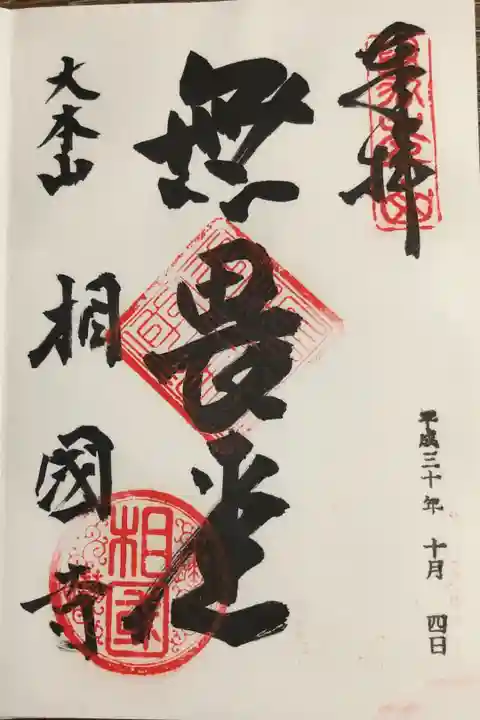 奉拝
平成三十年 十月 四日
無畏堂
大本山 相國寺
相国